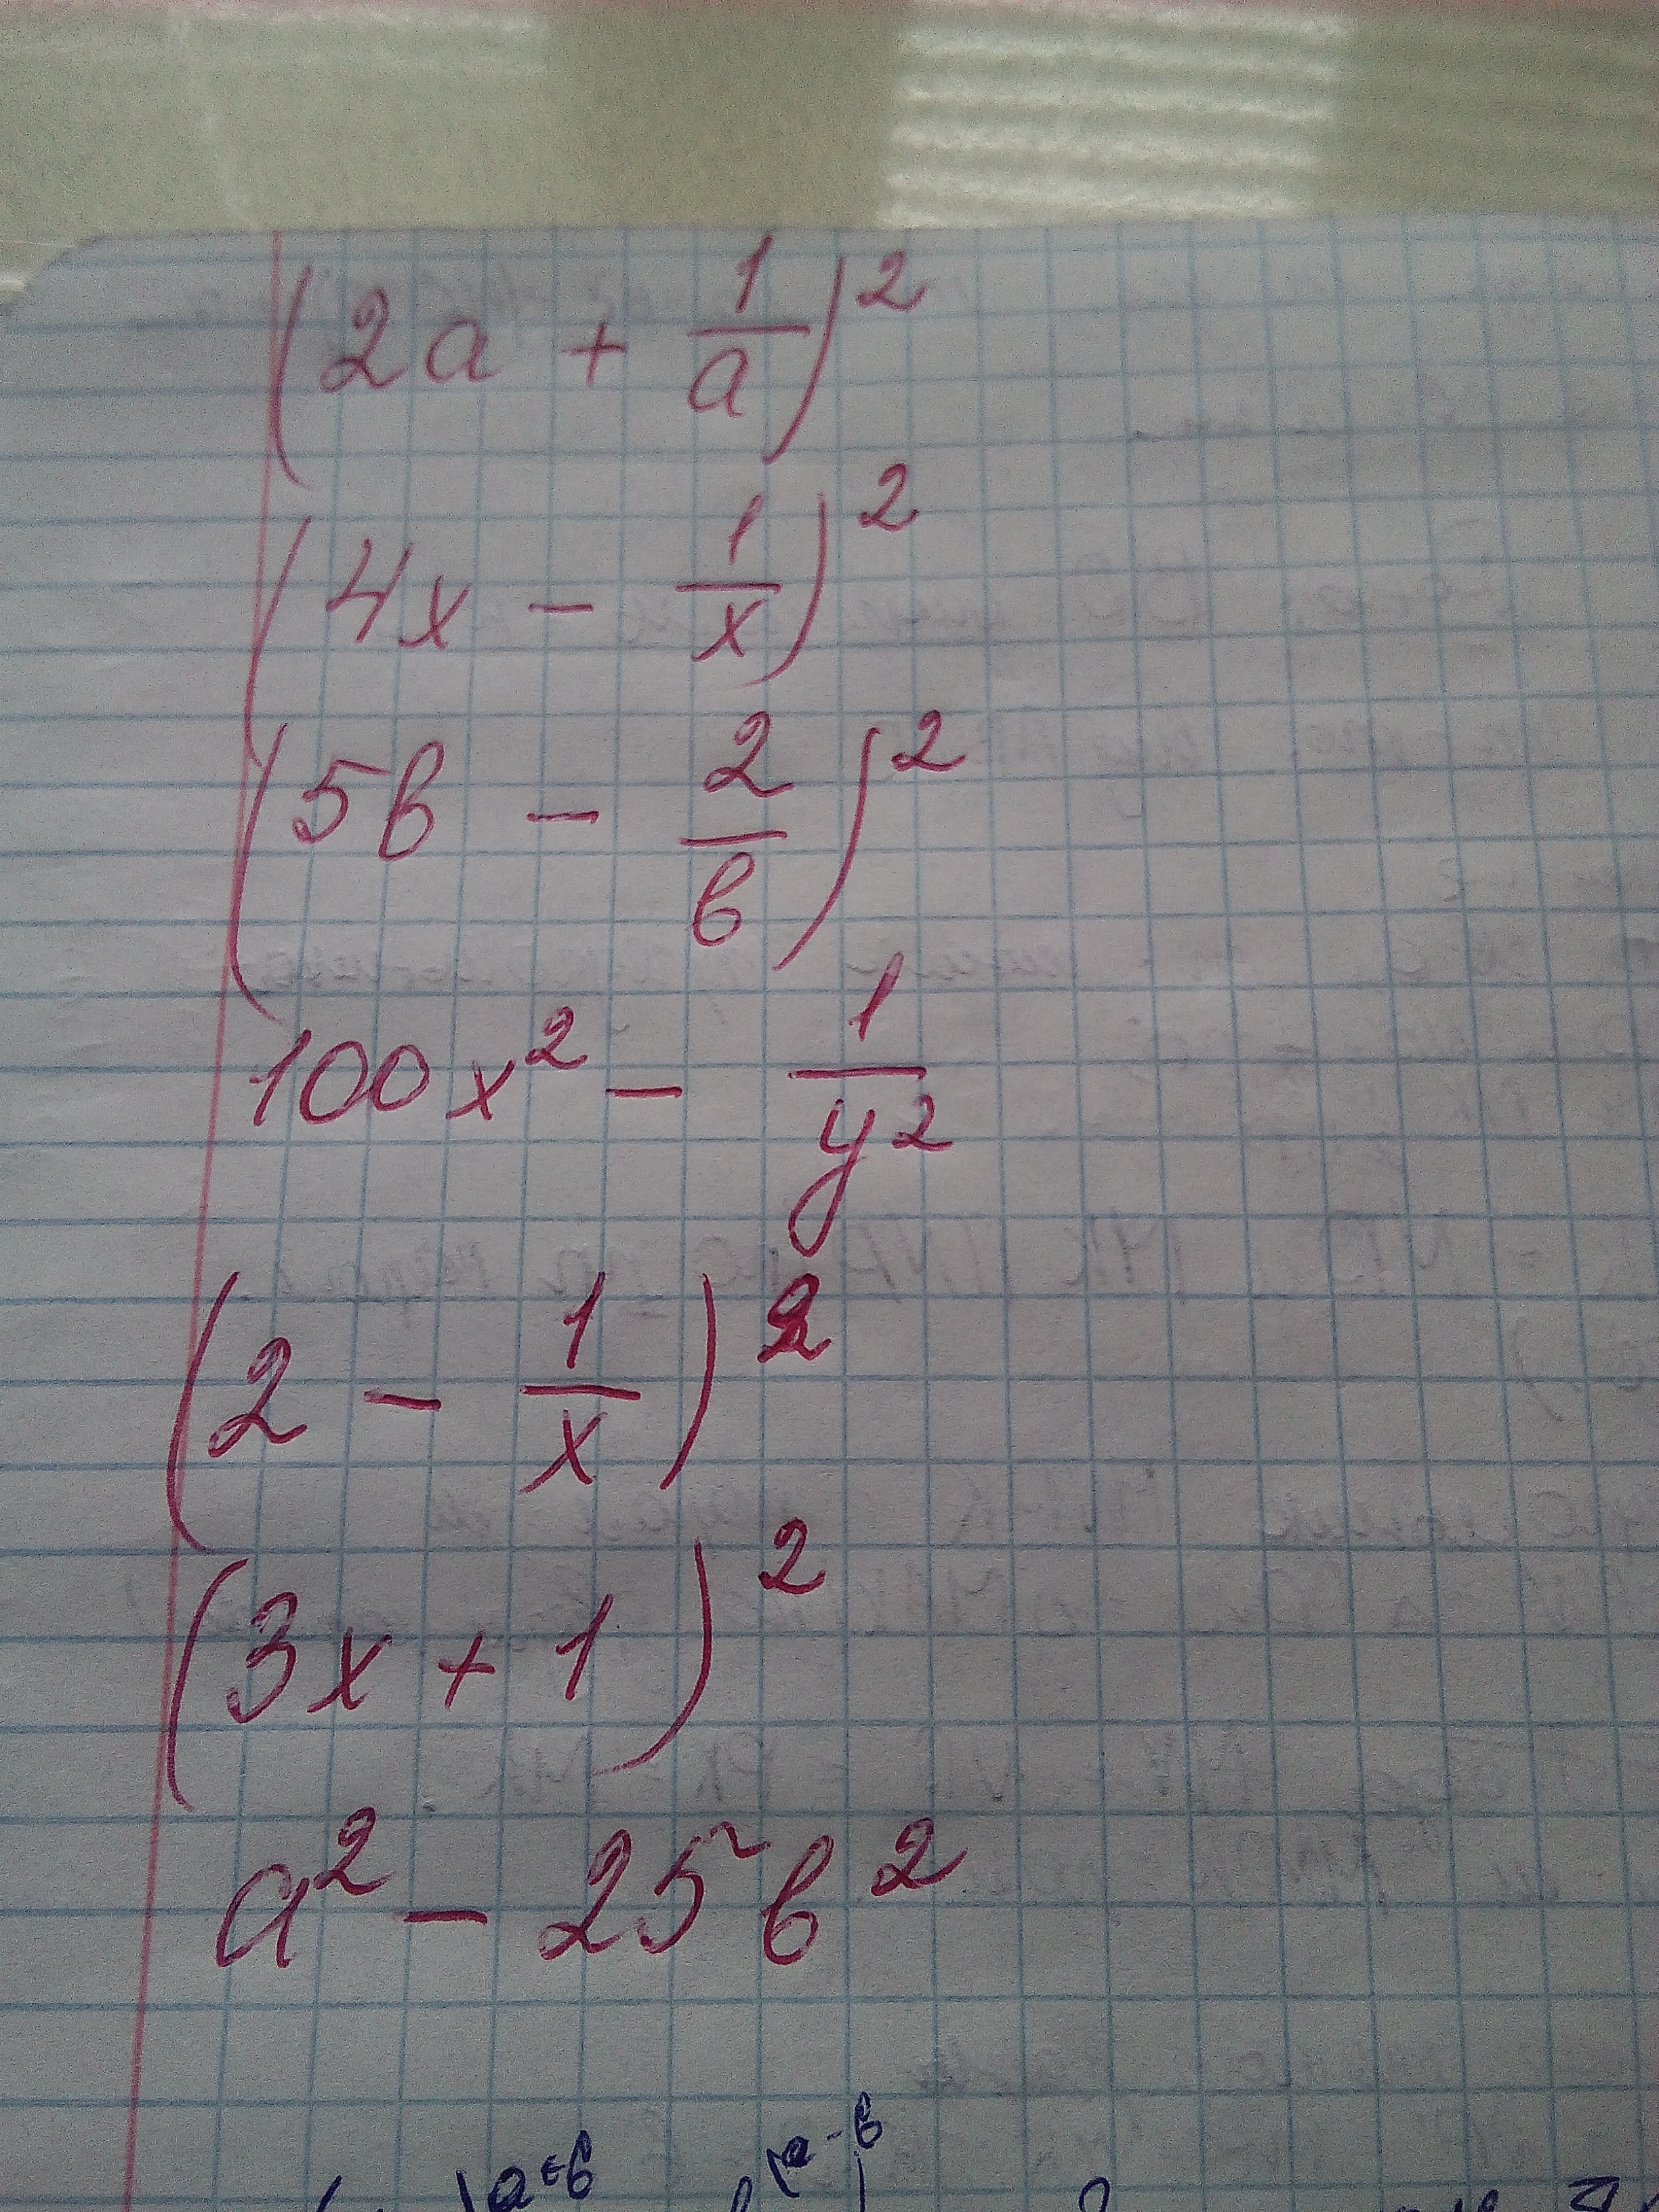 (2a + 1/a)²
(4x - 1/x)²
(5в - 2/в)²
100x² - 1/y²
(2 - 1/x)²
(3x + 1)²
a² - 25в²
a+в a-в